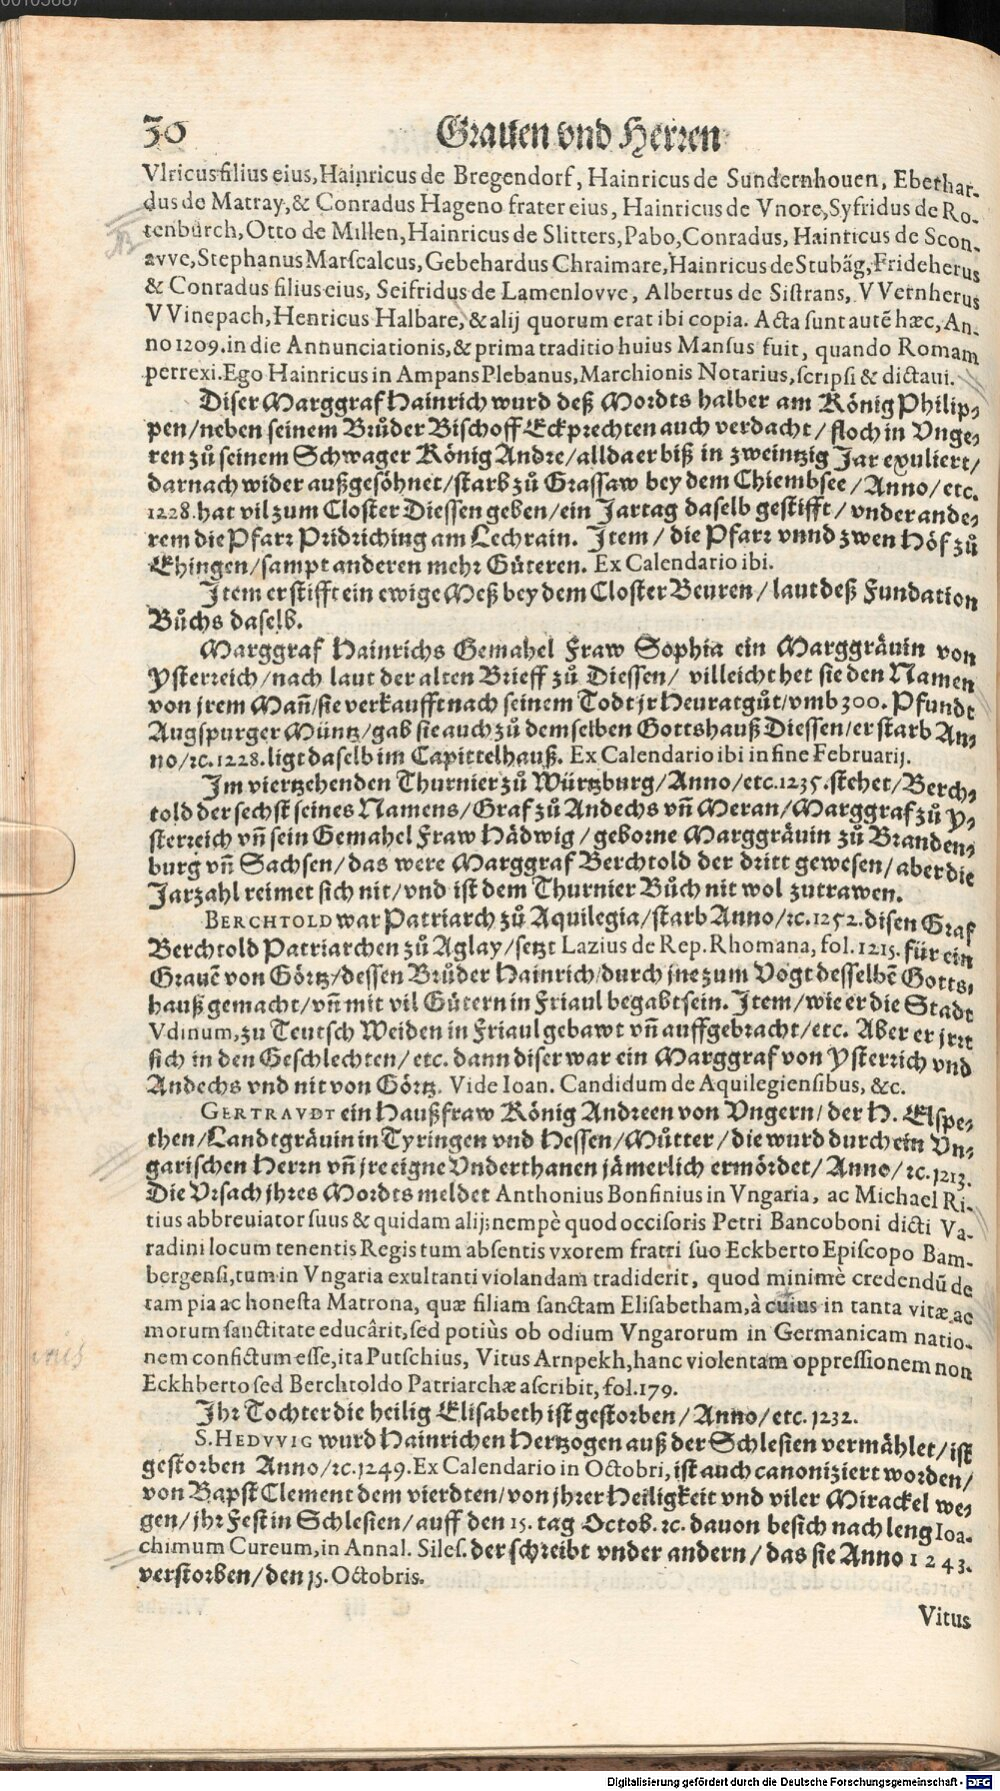 30 Grauen vnd Herren
Vlricus filius eius, Hainricus de Bregendorf, Hainricus de Sundernhouen, Eberhar-
dus de Matray, & Conradus Hageno frater eius, Hainricus de Vnore, Syfridus de Ro-
tenburch, Otto de Millen, Hainricus de Slitters, Pabo, Conradus, Hainricus de Scon-
avve, Stephanus Marscalcus, Gebehardus Chraimare, Hainricus de Stubãg, Frideherus
& Conradus filius eius, Seifridus de Lamenlovve, Albertus de Sistrans, VVernherus
VVinepach, Henricus Halbare, & alij quorum erat ibi copia. Acta sunt autẽ hæc, An-
no 1209. in die Annunciationis, & prima traditio huius Mansus fuit, quando Romam
perrexi. Ego Hainricus in Ampans Plebanus, Marchionis Notarius, scripsi & dictaui.
Diser Marggraf Hainrich wurd deß Mordts halber am König Philip-
pen/ neben seinem Brůder Bischoff Eckprechten auch verdacht/ floch in Vnge-
ren zů seinem Schwager König Andre/ allda er biß in zweintzig Jar exuliert/
darnach wider außgesöhnet/ starb zů Grassaw bey dem Chiembsee/ Anno/ etc.
1228. hat vil zum Closter Diessen geben/ ein Jartag daselb gestifft/ vnder ande-
rem die Pfarr Pridriching am Lechrain. Item/ die Pfarr vnnd zwen Höf zů
Ehingen/ sampt anderen mehr Güteren. Ex Calendario ibi.
Item er stifft ein ewige Meß bey dem Closter Beuren/ laut deß Fundation
Bůchs daselb.
Marggraf Hainrichs Gemahel Fraw Sophia ein Marggräuin von
Ysterreich/ nach laut der alten Brieff zů Diessen/ villeicht het sie den Namen
von jrem Mañ/ sie verkaufft nach seinem Todt jr Heuratgůt/ vmb 300. Pfundt
Augspurger Müntz/ gab sie auch zů demselben Gottshauß Diessen/ er starb An-
no/ ꝛc. 1228. ligt daselb im Capittelhauß. Ex Calendario ibi in fine Februarij.
Im viertzehenden Thurnier zů Würtzburg/ Anno/ etc. 1235. stehet/ Berch-
told der sechst seines Namens/ Graf zů Andechs vñ Meran/ Marggraf zů Y-
sterreich vñ sein Gemahel Fraw Hädwig/ geborne Marggräuin zů Branden-
burg vñ Sachsen/ das were Marggraf Berchtold der dritt gewesen/ aber die
Jarzahl reimet sich nit/ vnd ist dem Thurnier Bůch nit wol zutrawen.
BERCHTOLD war Patriarch zů Aquilegia/ starb Anno/ ꝛc. 1252. disen Graf
Berchtold Patriarchen zů Aglay/ setzt Lazius de Rep. Rhomana, fol. 1215. für ein
Grauẽ von Görtz/ dessen Brůder Hainrich/ durch jne zum Vogt desselbẽ Gotts-
hauß gemacht/ vñ mit vil Gütern in Friaul begabt sein. Item/ wie er die Stadt
Vdinum, zu Teutsch Weiden in Friaul gebawt vñ auffgebracht/ etc. Aber er jrrt
sich in den Geschlechten/ etc. dann diser war ein Marggraf von Ysterrich vnd
Andechs vnd nit von Görtz. Vide Ioan. Candidum de Aquilegiensibus, &c.
GERTRAVDT ein Haußfraw König Andreen von Vngern/ der H. Elspe-
then/ Landtgräuin in Tyringen vnd Hessen/ Můtter/ die wurd durch ein Vn-
garischen Herrn vñ jre eigne Vnderthanen jämerlich ermördet/ Anno/ ꝛc. 1213.
Die Vrsach jhres Mordts meldet Anthonius Bonfinius in Vngaria, ac Michael Ri-
tius abbreuiator suus & quidam alij; nempè quod occisoris Petri Bancoboni dicti Va-
radini locum tenentis Regis tum absentis vxorem fratri suo Eckberto Episcopo Bam-
bergensi, tum in Vngaria exultanti violandam tradiderit, quod minimè credendũ de
tam pia ac honesta Matrona, quæ filiam sanctam Elisabetham, à cuius in tanta vitæ ac
morum sanctitate educârit, sed potiùs ob odium Vngarorum in Germanicam natio-
nem confictum esse, ita Putschius, Vitus Arnpekh, hanc violentam oppressionem non
Eckhberto sed Berchtoldo Patriarchæ ascribit, fol. 179.
Ihr Tochter die heilig Elisabeth ist gestorben/ Anno/ etc. 1232.
S. HEDVVIG wurd Hainrichen Hertzogen auß der Schlesien vermählet/ ist
gestorben Anno/ ꝛc. 1249. Ex Calendario in Octobri, ist auch canoniziert worden/
von Bapst Clement dem vierdten/ von jhrer Heiligkeit vnd viler Mirackel we-
gen/ jhr Fest in Schlesien/ auff den 15. tag Octob. ꝛc. dauon besich nach leng Ioa-
chimum Cureum, in Annal. Siles. der schreibt vnder andern/ das sie Anno 1243.
verstorben/ den 15. Octobris.
Vitus
Digitalisierung gefördert durch die Deutsche Forschungsgemeinschaft - DFG